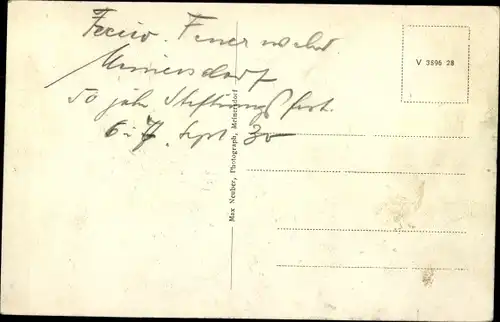 Freiw. Feuerwehr.
Meinersdorf
50 jähr. Stiftungsfest.
6. 7. Sept. 30
V 3896 28
Max Neuber, Photograph, Meinersdorf